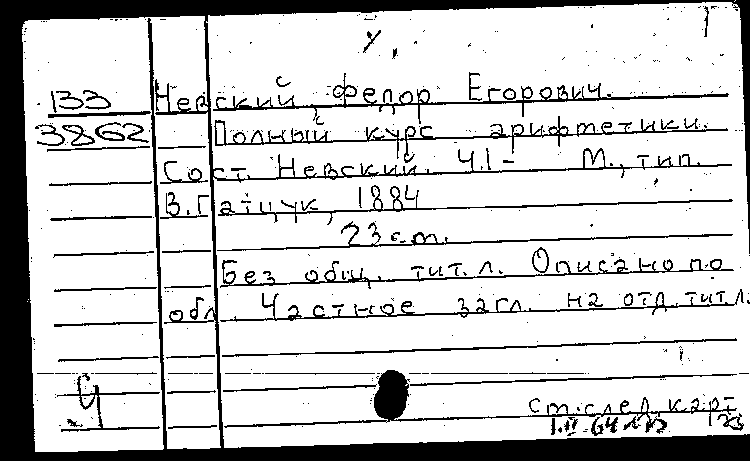 133 Невский, Федор Егорович.
3862 Полный курс арифметики.
Сост. Невский. Ч.I- М., тип.
В.Гатцук, 1884
23 см.
Без общ. тит.л. Описано по
обл. Частное загл. на отд.тит.л.
Ч
см.след.карт.
1.II-64